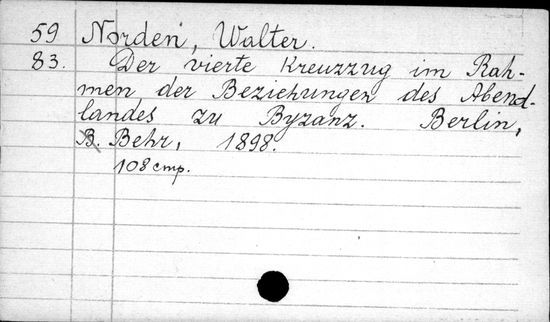 59 Norden, Walter.
83. Der vierte Kreuzzug im Rah-
men der Beziehungen des Abend-
landes zu Byzanz. Berlin,
B. Behr, 1898.
108 стр.